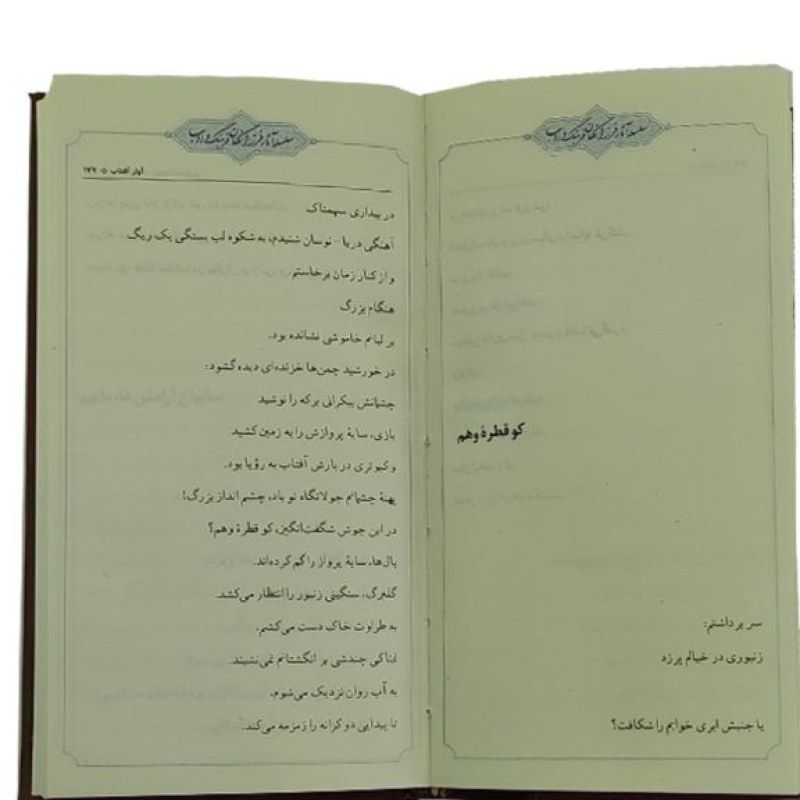 سلسله آثار فرزانگان فرهنگ و ادب
کو قطرهٔ وهم
سر برداشتم:
زنبوری در خیالم پر زد
یا جنبش ابری خوابم را شکافت؟
سلسله آثار فرزانگان فرهنگ و ادب
آوار آفتاب ❖ ۱۷۷
در بیداری سهمناک
آهنگی دریا - نوسان شنیدم، به شکوه لب بستگی یک ریگ
و از کنار زمان برخاستم.
هنگام بزرگ
بر لبانم خاموشی نشانده بود.
در خورشید چمن‌ها خزنده‌ای دیده گشود:
چشمانش بیکرانی برکه را نوشید
بازی، سایهٔ پروازش را به زمین کشید
و کبوتری در بارش آفتاب به رؤیا بود.
پهنهٔ چشمانم جولانگاه تو باد، چشم انداز بزرگ!
در این جوش شگفت‌انگیز، کو قطرهٔ وهم؟
بال‌ها، سایهٔ پرواز را گم کرده‌اند.
گلبرگ، سنگینی زنبور را انتظار می‌کشد.
به طراوت خاک دست می‌کشم،
نمناکی چندشی بر انگشتانم نمی‌نشیند.
به آب روان نزدیک می‌شوم،
نا پیدایی دو کرانه را زمزمه می‌کند.